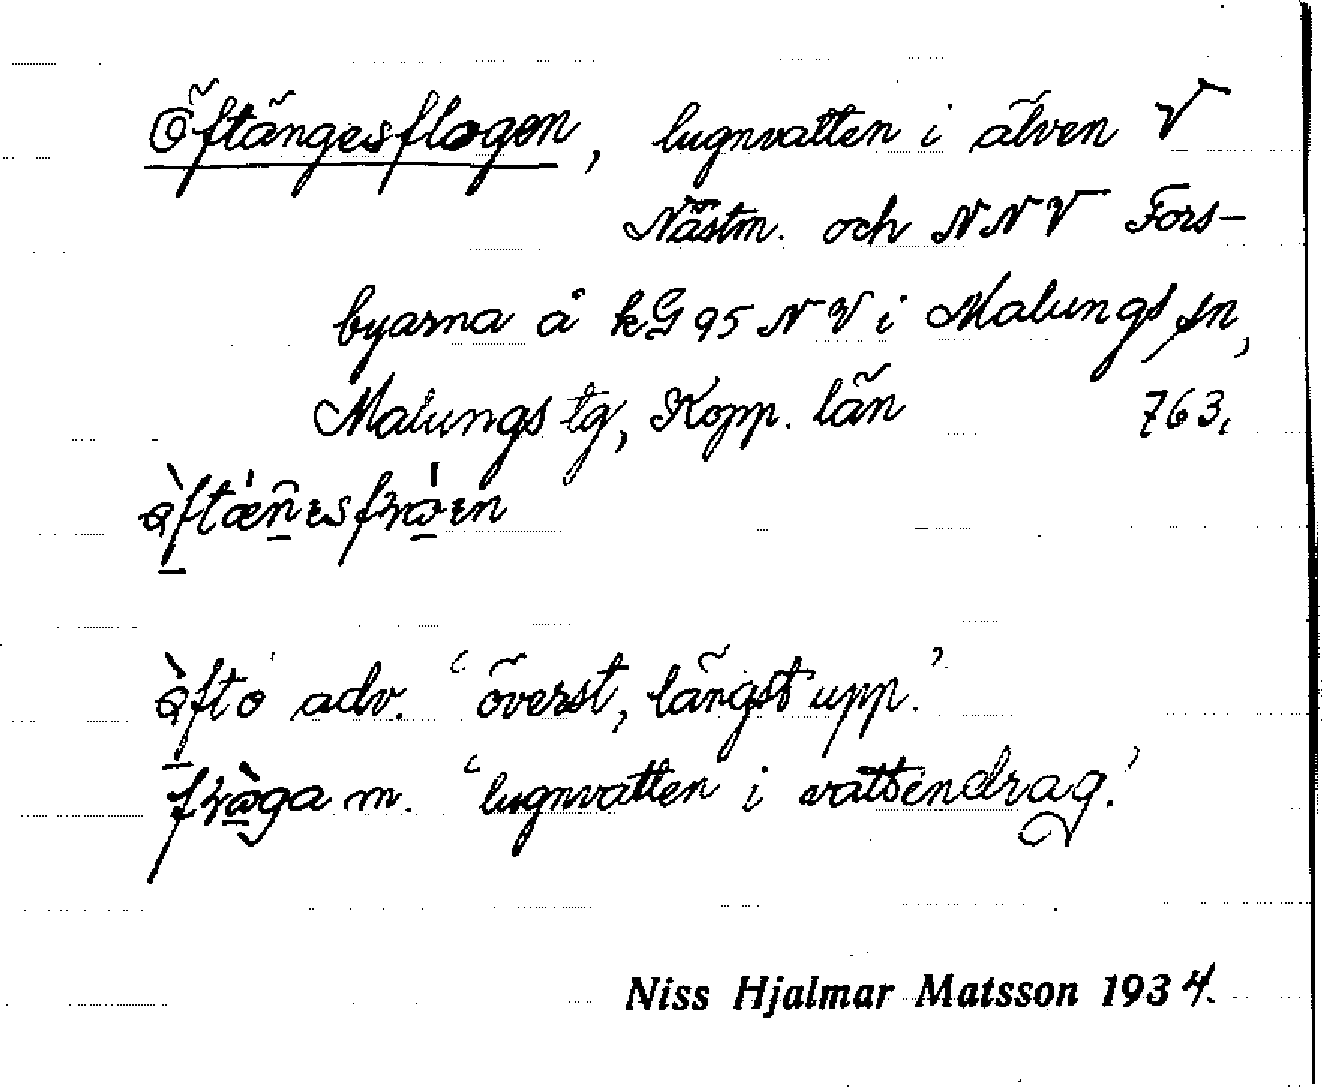 Öftängesflogen, lugnvatten i älven V
Nästm. och NNV Fors-
byarna å kG 95 NV i Malungs sn,
Malungs tg, Kopp. län 763.
adv. ‘överst, längst upp.’
m. ‘lugnvatten i vattendrag.’
Niss Hjalmar Matsson 1934.